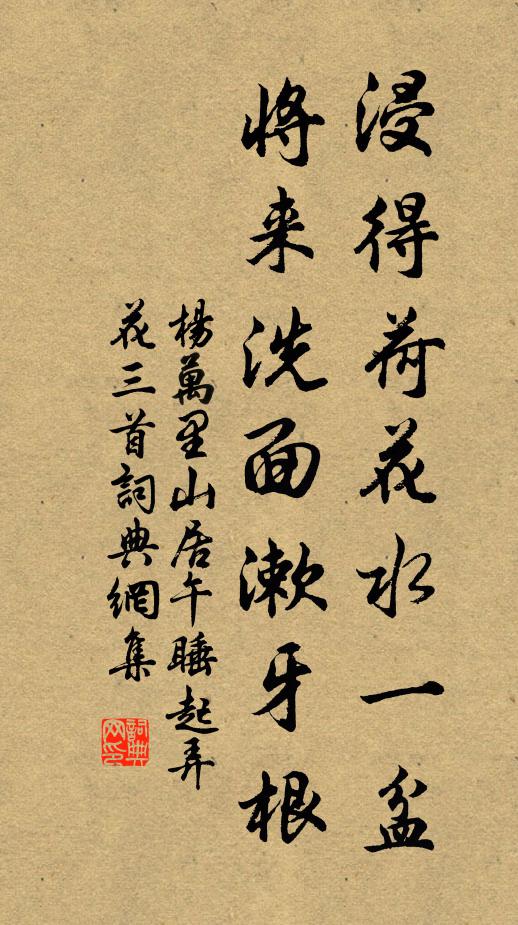 浸得荷花水一盆
将来洗面漱牙根
楊萬里山居午睡起弄
花三首詞典網集
詞典网印